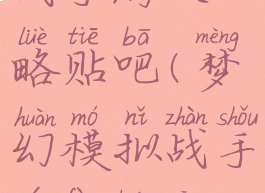 lüè tiē bā mèng
略贴吧(梦
huàn mó nǐ zhàn shǒu
幻模拟战手